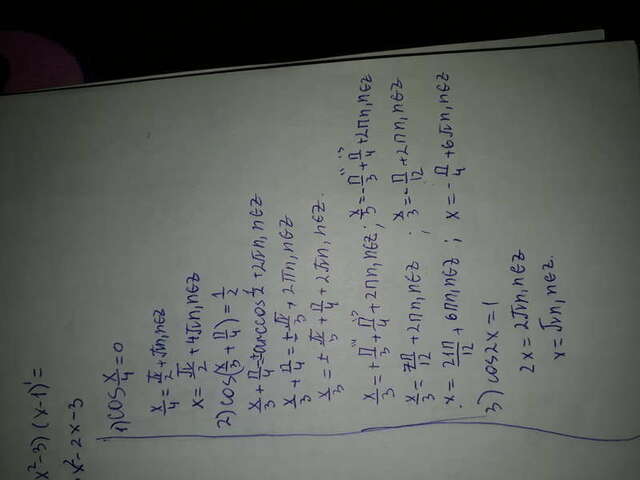 x²-3)(x-1)'=
x²-2x-3
1) cos x/4 = 0
x/4 = π/2 + πn, n∈Z
x = π/2 + 4πn, n∈Z
2) cos(x/3 + π/4) = 1/2
x/3 + π/4 = ±arccos 1/2 + 2πn, n∈Z
x/3 + π/4 = ± π/3 + 2πn, n∈Z
x/3 = ± π/3 + π/4 + 2πn, n∈Z.
x/3 = + π/3 + π/4 + 2πn, n∈Z; x/3 = - π/3 + π/4 + 2πn, n∈Z
x/3 = 7π/12 + 2πn, n∈Z; x/3 = - π/12 + 2πn, n∈Z
x = 21π/12 + 6πn, n∈Z; x = - π/4 + 6πn, n∈Z
3) cos2x = 1
2x = 2πn, n∈Z
x = πn, n∈Z.